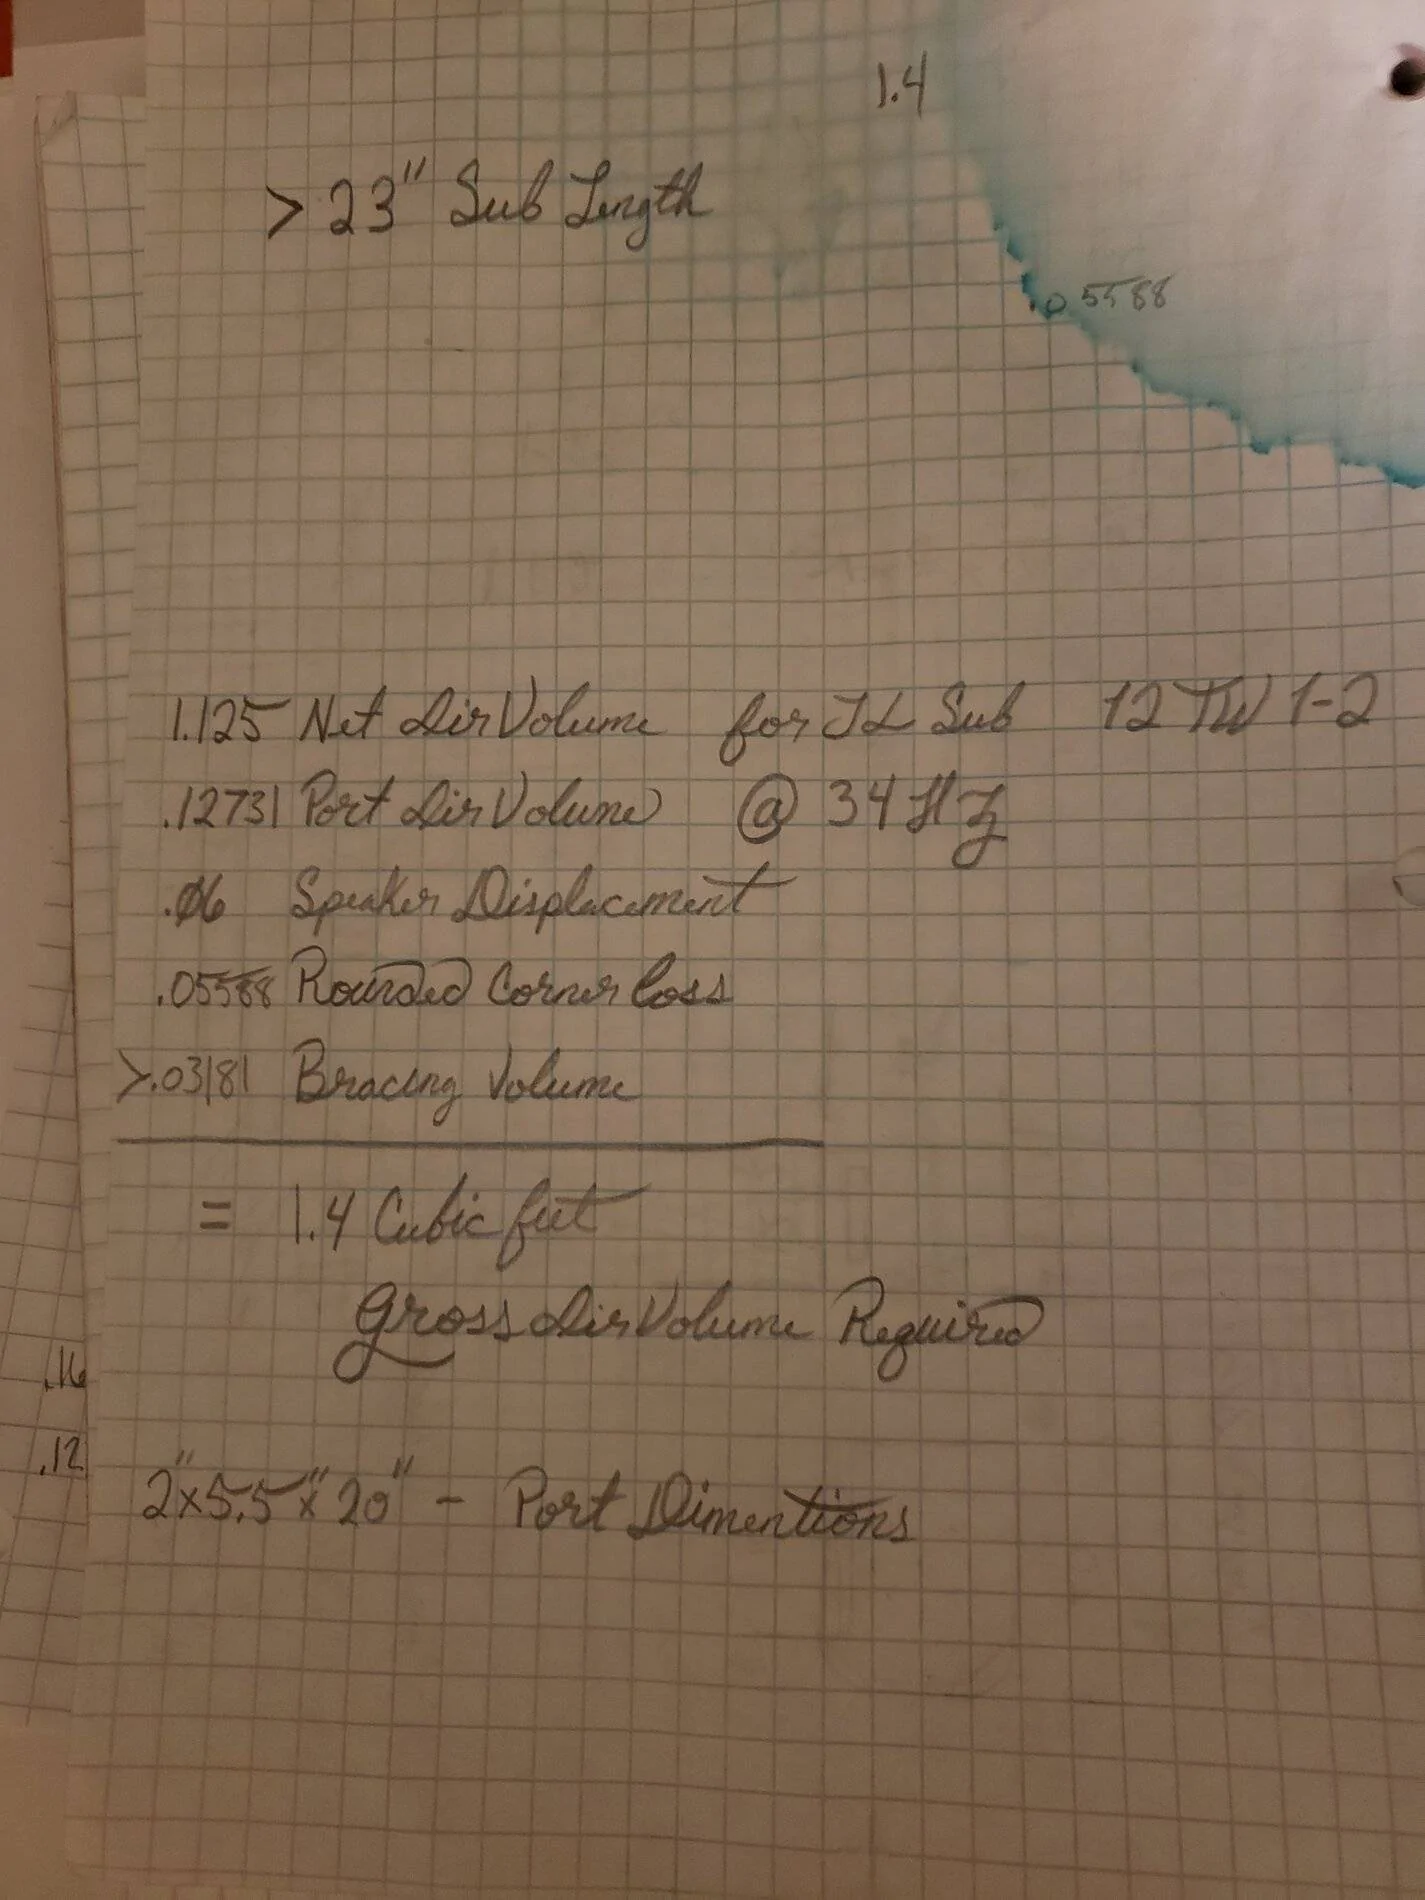 1.4
> 23" Sub Length
.05588
1.125 Net Air Volume for JL Sub 12 TW 1-2
.12731 Port Air Volume @ 34 Hz
.06 Speaker Displacement
.05588 Rounded Corner loss
>.03181 Bracing Volume
= 1.4 Cubic feet
Gross Air Volume Required
.16
.12
2"x5.5"x20" - Port Dimentions